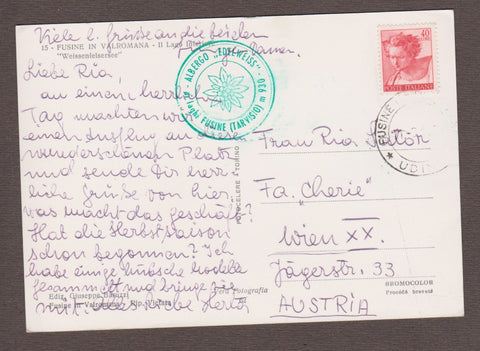 Viele l. Grüsse an die beiden
15 - FUSINE IN VALROMANA - Il Lago
"Weissenfelsersee"
Liebe Ria,
an einem herrlichen
Tag machten wir
einen Ausflug an diesen
wunderschönen Platz
und sende Dir herz
liche Grüße von hier.
Was macht das Geschäft?
Hat die Herbstsaison
schon begonnen? Ich
habe einige hübsche Modelle
gesammelt und bringe sie
mit. Alles Liebe
Ediz. Giuseppe
Fusine in Valromana - Rip. Vietata
ALBERGO "EDELWEISS"
laghi FUSINE (TARVISIO) m 930
FOTOCELERE TORINO
Vera Fotografia
40
POSTE ITALIANE
FUSINE
UDI
Frau Ria
Fa. "Cherie"
Wien XX.
Jägerstr. 33
AUSTRIA
BROMOCOLOR
Procédé breveté